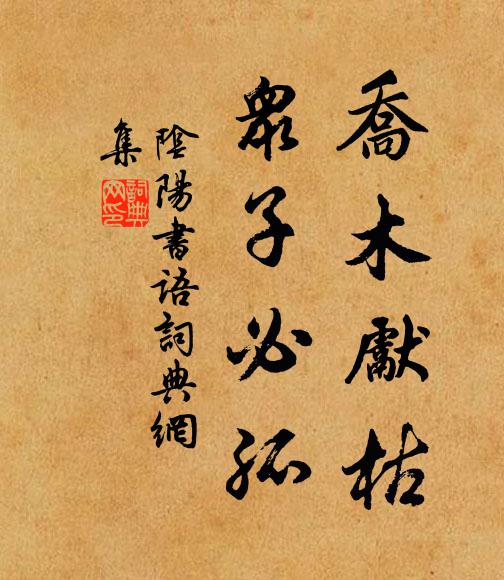 喬木獻枯
眾子必孤
陰陽書語詞典網
集
詞典
网印